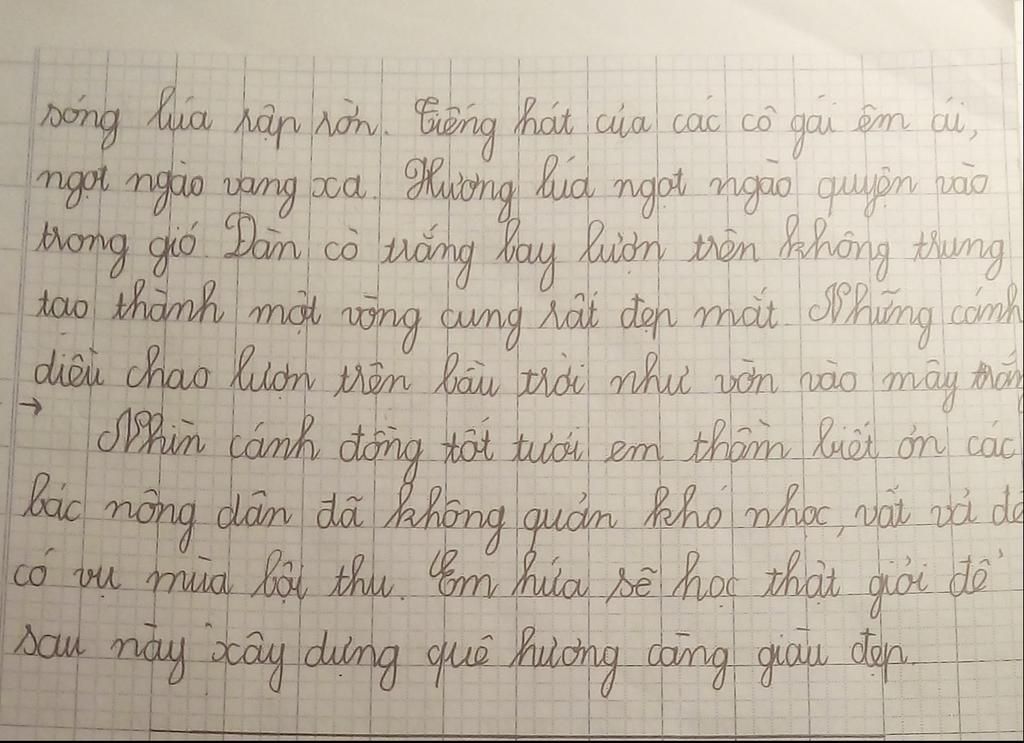 sóng lúa rập rờn. Tiếng hát của các cô gái êm ái,
ngọt ngào vang xa. Hương lúa ngọt ngào quyện vào
trong gió. Đàn cò trắng bay lượn trên không trung
tạo thành một vòng cung rất đẹp mắt. Những cánh
diều chao lượn trên bầu trời như vờn vào mây trắng
→
Nhìn cánh đồng tốt tươi em thầm biết ơn các
bác nông dân đã không quản khó nhọc, vất vả để
có vụ mùa bội thu. Em hứa sẽ học thật giỏi để
sau này xây dựng quê hương càng giàu đẹp.